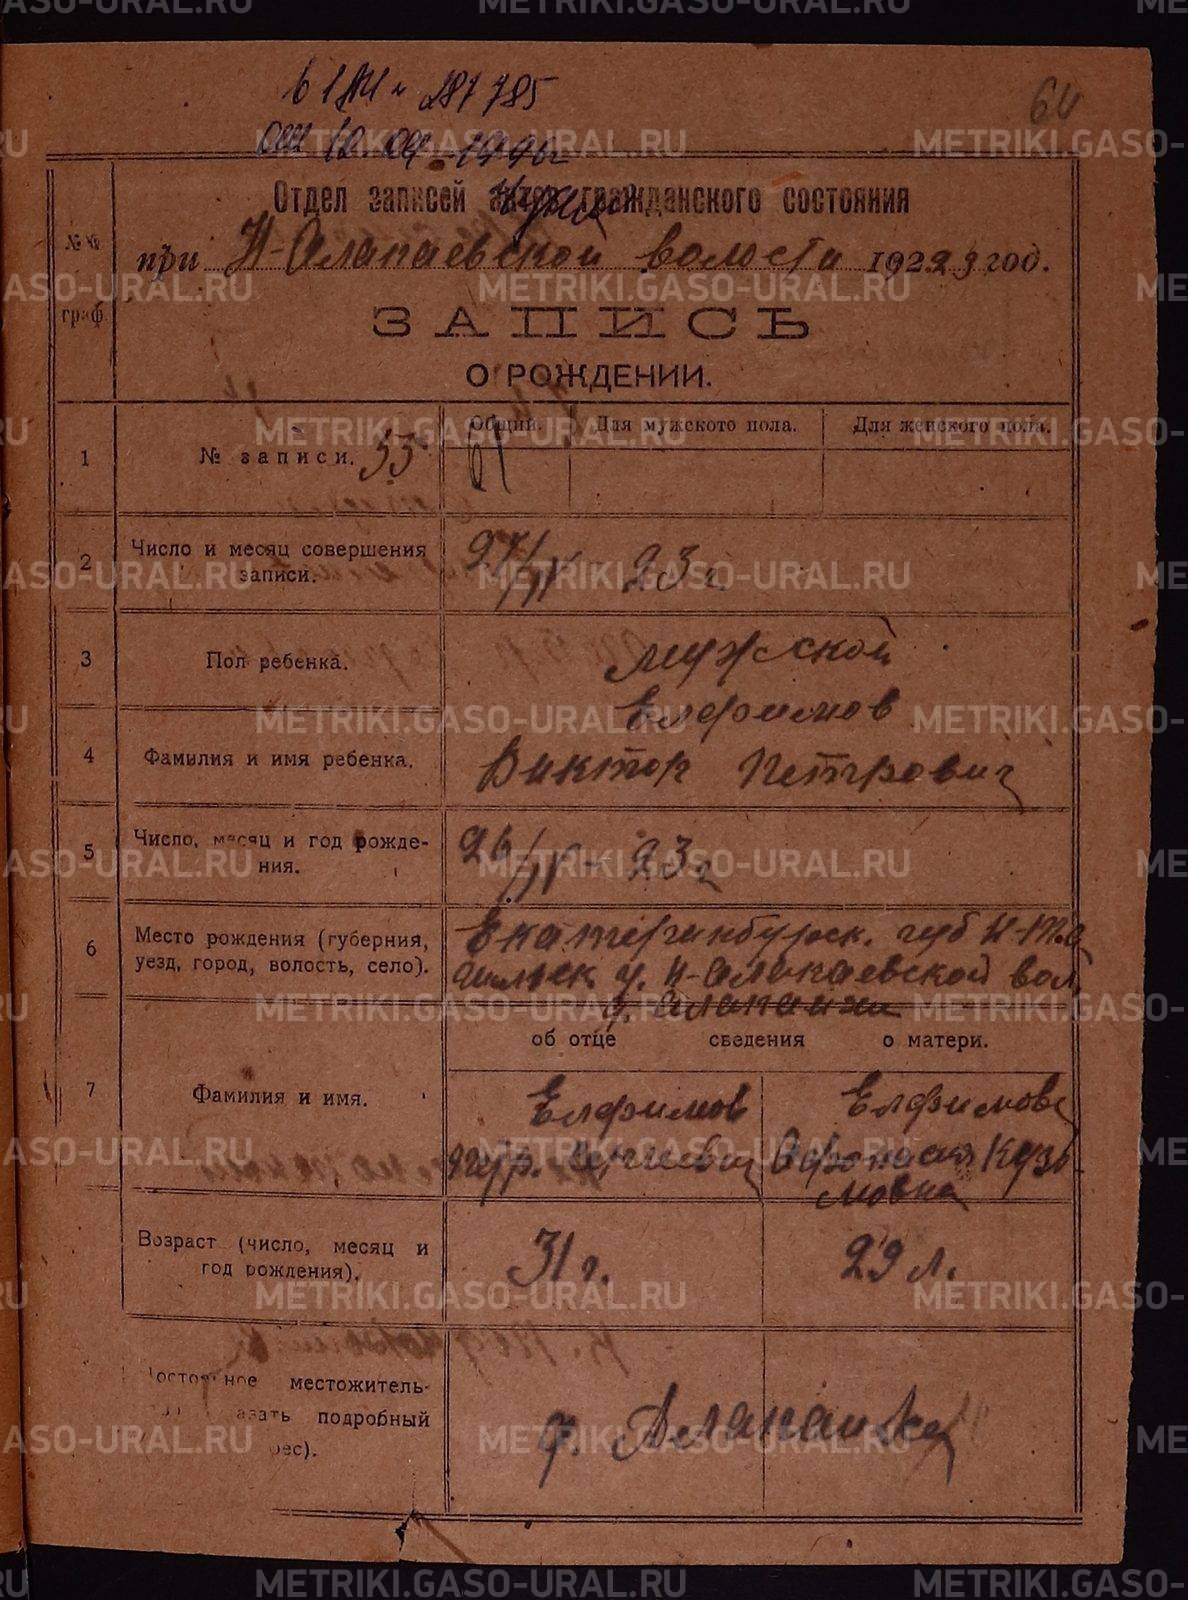 64
287785
Отдел записей актов гражданского состояния
№№ граф.
при Н-Алапаевской волости 1923 год.
ЗАПИСЬ
О РОЖДЕНИИ.
1
№ записи. 55
Общий. Для мужского пола. Для женского пола.
61
2
Число и месяц совершения записи.
27/IV - 23 г.
3
Пол ребенка.
мужской
4
Фамилия и имя ребенка.
Елфимов
Виктор Петрович
5
Число, месяц и год рождения.
26/IV - 23 г
6
Место рождения (губерния,
уезд, город, волость, село).
Екатеринбургск. губ Н-Та
гильск у. Н-Алапаевской вол
д. Алапаиха
об отце сведения о матери.
7
Фамилия и имя.
Елфимов
Елфимова
Афонасия Кузь
мовна
Возраст (число, месяц и
год рождения).
31 г.
29 л.
местожитель-
подробный
д. Алапаиха
METRIKI.GASO-URAL.RU